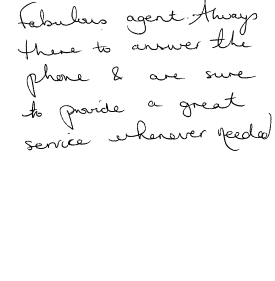 Fabulous agent. Always
there to answer the
phone & are sure
to provide a great
service whenever needed